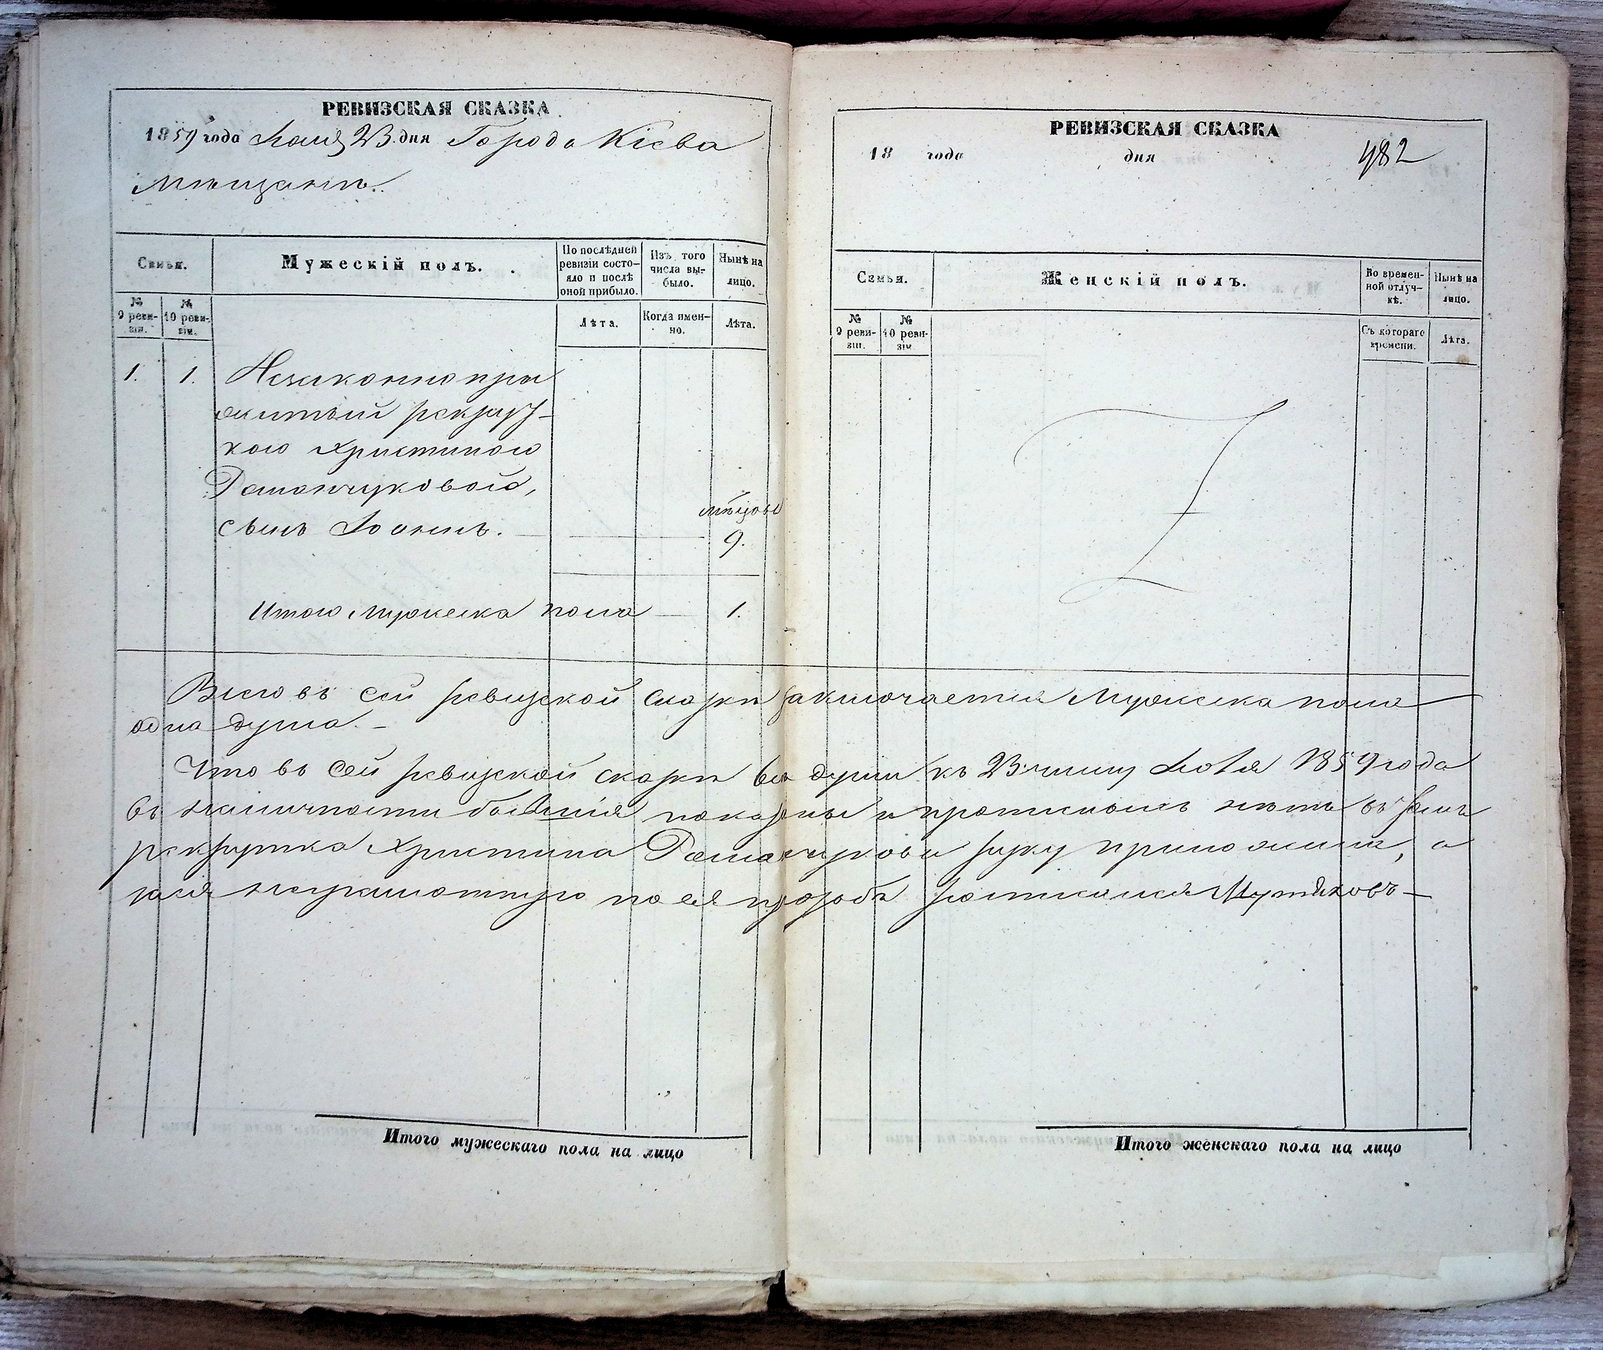 РЕВИЗСКАЯ СКАЗКА
1859 года Іюля 23 дня Города Кіева
Мѣщанъ.
Семьи.
Мужескій полъ.
По послѣдней ревизіи состояло и послѣ оной прибыло.
Изъ того числа выбыло.
Нынѣ на лицо.
№ 9 ревизіи.
№ 10 ревизіи.
Лѣта.
Когда именно.
Лѣта.
1. 1. Незаконнопри
житый рекрут-
кою Христиною
сынъ Іоаннъ.
мѣсяцовъ
9.
Итого Мужеска пола 1.
РЕВИЗСКАЯ СКАЗКА
18 года дня
982
Семьи.
Женскій полъ.
Во временной отлучкѣ.
Нынѣ на лицо.
№ 9 ревизіи.
№ 10 ревизіи.
Съ котораго времени.
Лѣта.
Всего въ сей ревизской сказкѣ заключается Мужеска пола
одна душа.
Что въ сей ревизской сказкѣ всѣ души къ 23 числу Іюля 1859 года
въ наличности бывшія показаны и прописныхъ нѣтъ въ томъ
рекрутка Христина руку приложила, а
за нея неграмотную по ея прозьбѣ росписался
Итого мужескаго пола на лицо
Итого женскаго пола на лицо